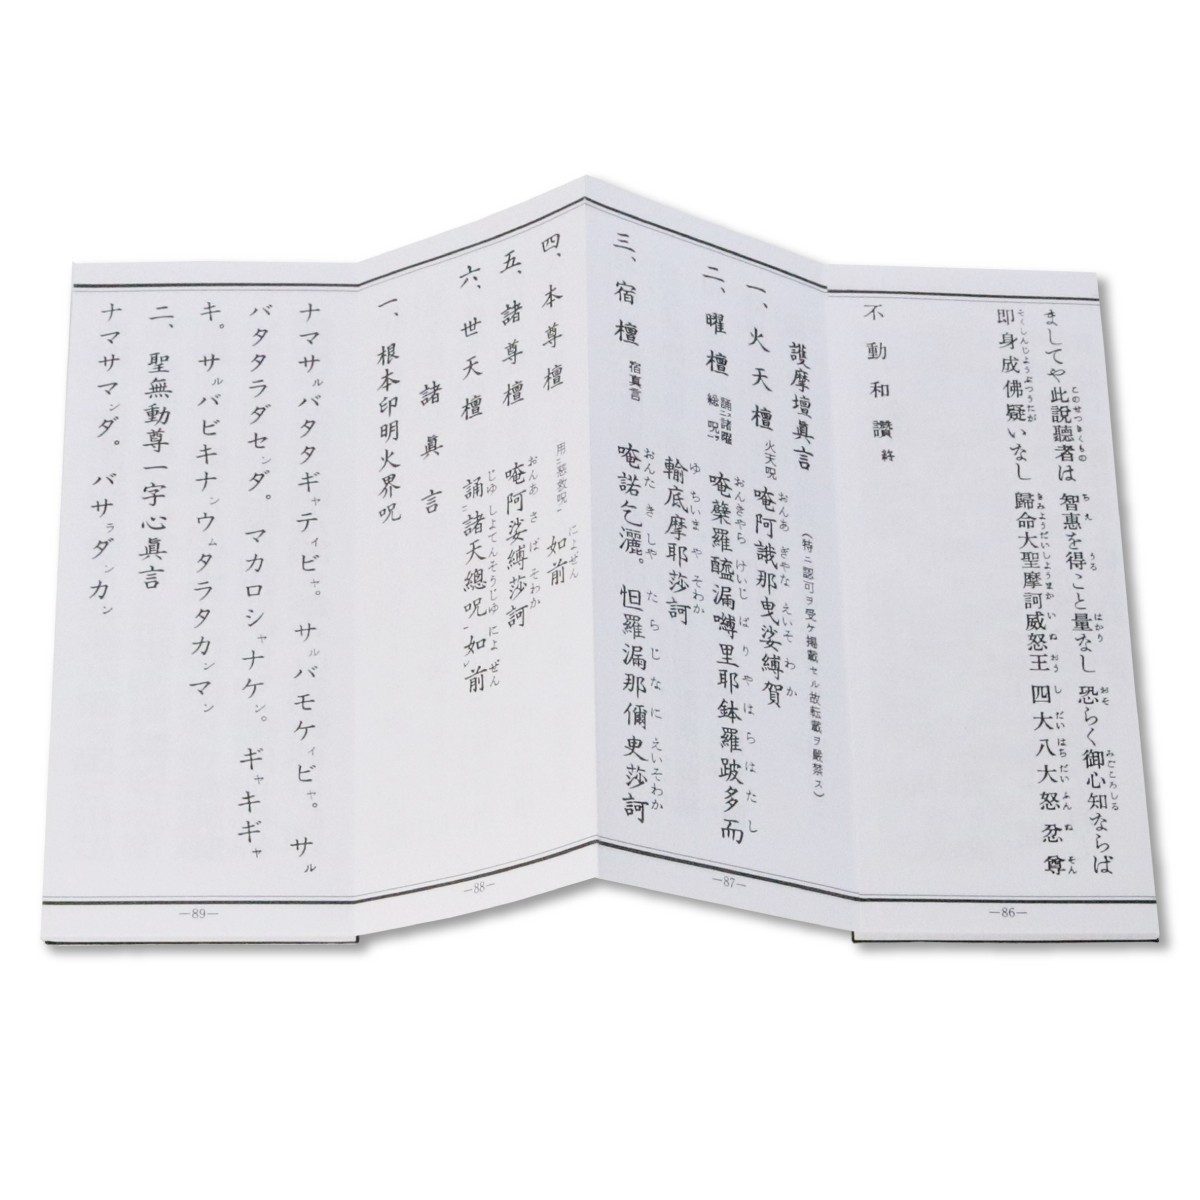 ましてや此說聽者は　智惠を得こと量なし　恐らく御心知ならば
即身成佛疑いなし　歸命大聖摩訶威怒王　四大八大怒忿尊
不動和讚　終
—86—
護摩壇眞言　（特ニ認可ヲ受ケ掲載セル故転載ヲ嚴禁ス）
一、火天檀　火天呪　唵阿誐那曳娑縛賀
二、曜檀　誦ニ諸曜總呪ヲ　唵蘖羅醯濕嚩里耶鉢羅跛多而
輸底摩耶莎訶
三、宿檀　宿真言　唵諾乞灑。怛羅漏那儞曳莎訶
—87—
四、本尊檀　用ニ慈救呪ヲ　如前
五、諸尊檀　唵阿娑縛莎訶
六、世天檀　誦諸天總呪如前
諸眞言
一、根本印明火界呪
—88—
ナマサルバタタギャテイビャ。サルバモケイビャ。サル
バタタラダセンダ。マカロシャナケン。ギャキギャ
キ。サルバビキナンウムタラタカンマン
二、聖無動尊一字心眞言
ナマサマンダ。バサラダンカン
—89—